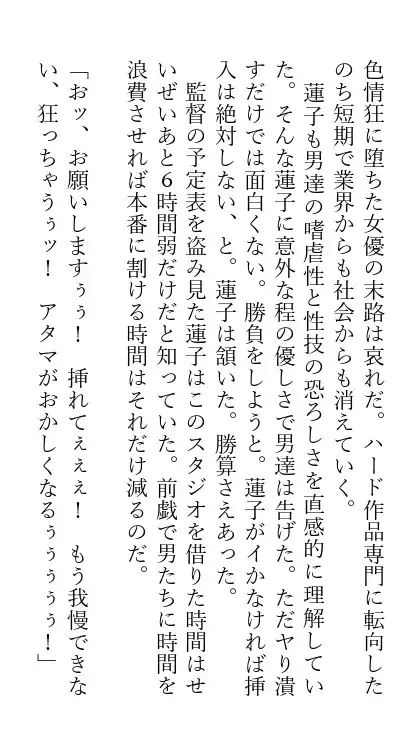 色情狂に堕ちた女優の末路は哀れだ。ハード作品専門に転向した
のち短期で業界からも社会からも消えていく。
　蓮子も男達の嗜虐性と性技の恐ろしさを直感的に理解してい
た。そんな蓮子に意外な程の優しさで男達は告げた。ただヤり潰
すだけでは面白くない。勝負をしようと。蓮子がイかなければ挿
入は絶対しない、と。蓮子は頷いた。勝算さえあった。
　監督の予定表を盗み見た蓮子はこのスタジオを借りた時間はせ
いぜいあと６時間弱だけだと知っていた。前戯で男たちに時間を
浪費させれば本番に割ける時間はそれだけ減るのだ。
「おッ、お願いしますぅぅ！　挿れてぇぇぇ！　もう我慢できな
い、狂っちゃうぅッ！　アタマがおかしくなるぅぅぅぅぅ！」